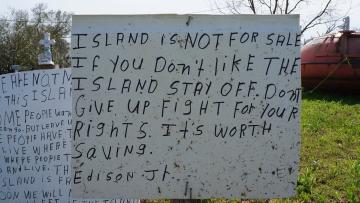 ISLAND IS NOT FOR SALE
If YOU Don't LIKE THE
ISLAND STAY OFF. Don't
GIVE UP FIGHT FOR YOUR
RigHTS. It's WORTH
Saving.
Edison Jr.
E HE NOT
THIS ISLA
ME PEOPLE WOR
BUT LEAVE U
E PEOPLE HAVE T
LIVE WHERE
WHERE PEOPLE T
AND LIVE. THE
ISLAND IS FA
SON WE WILL